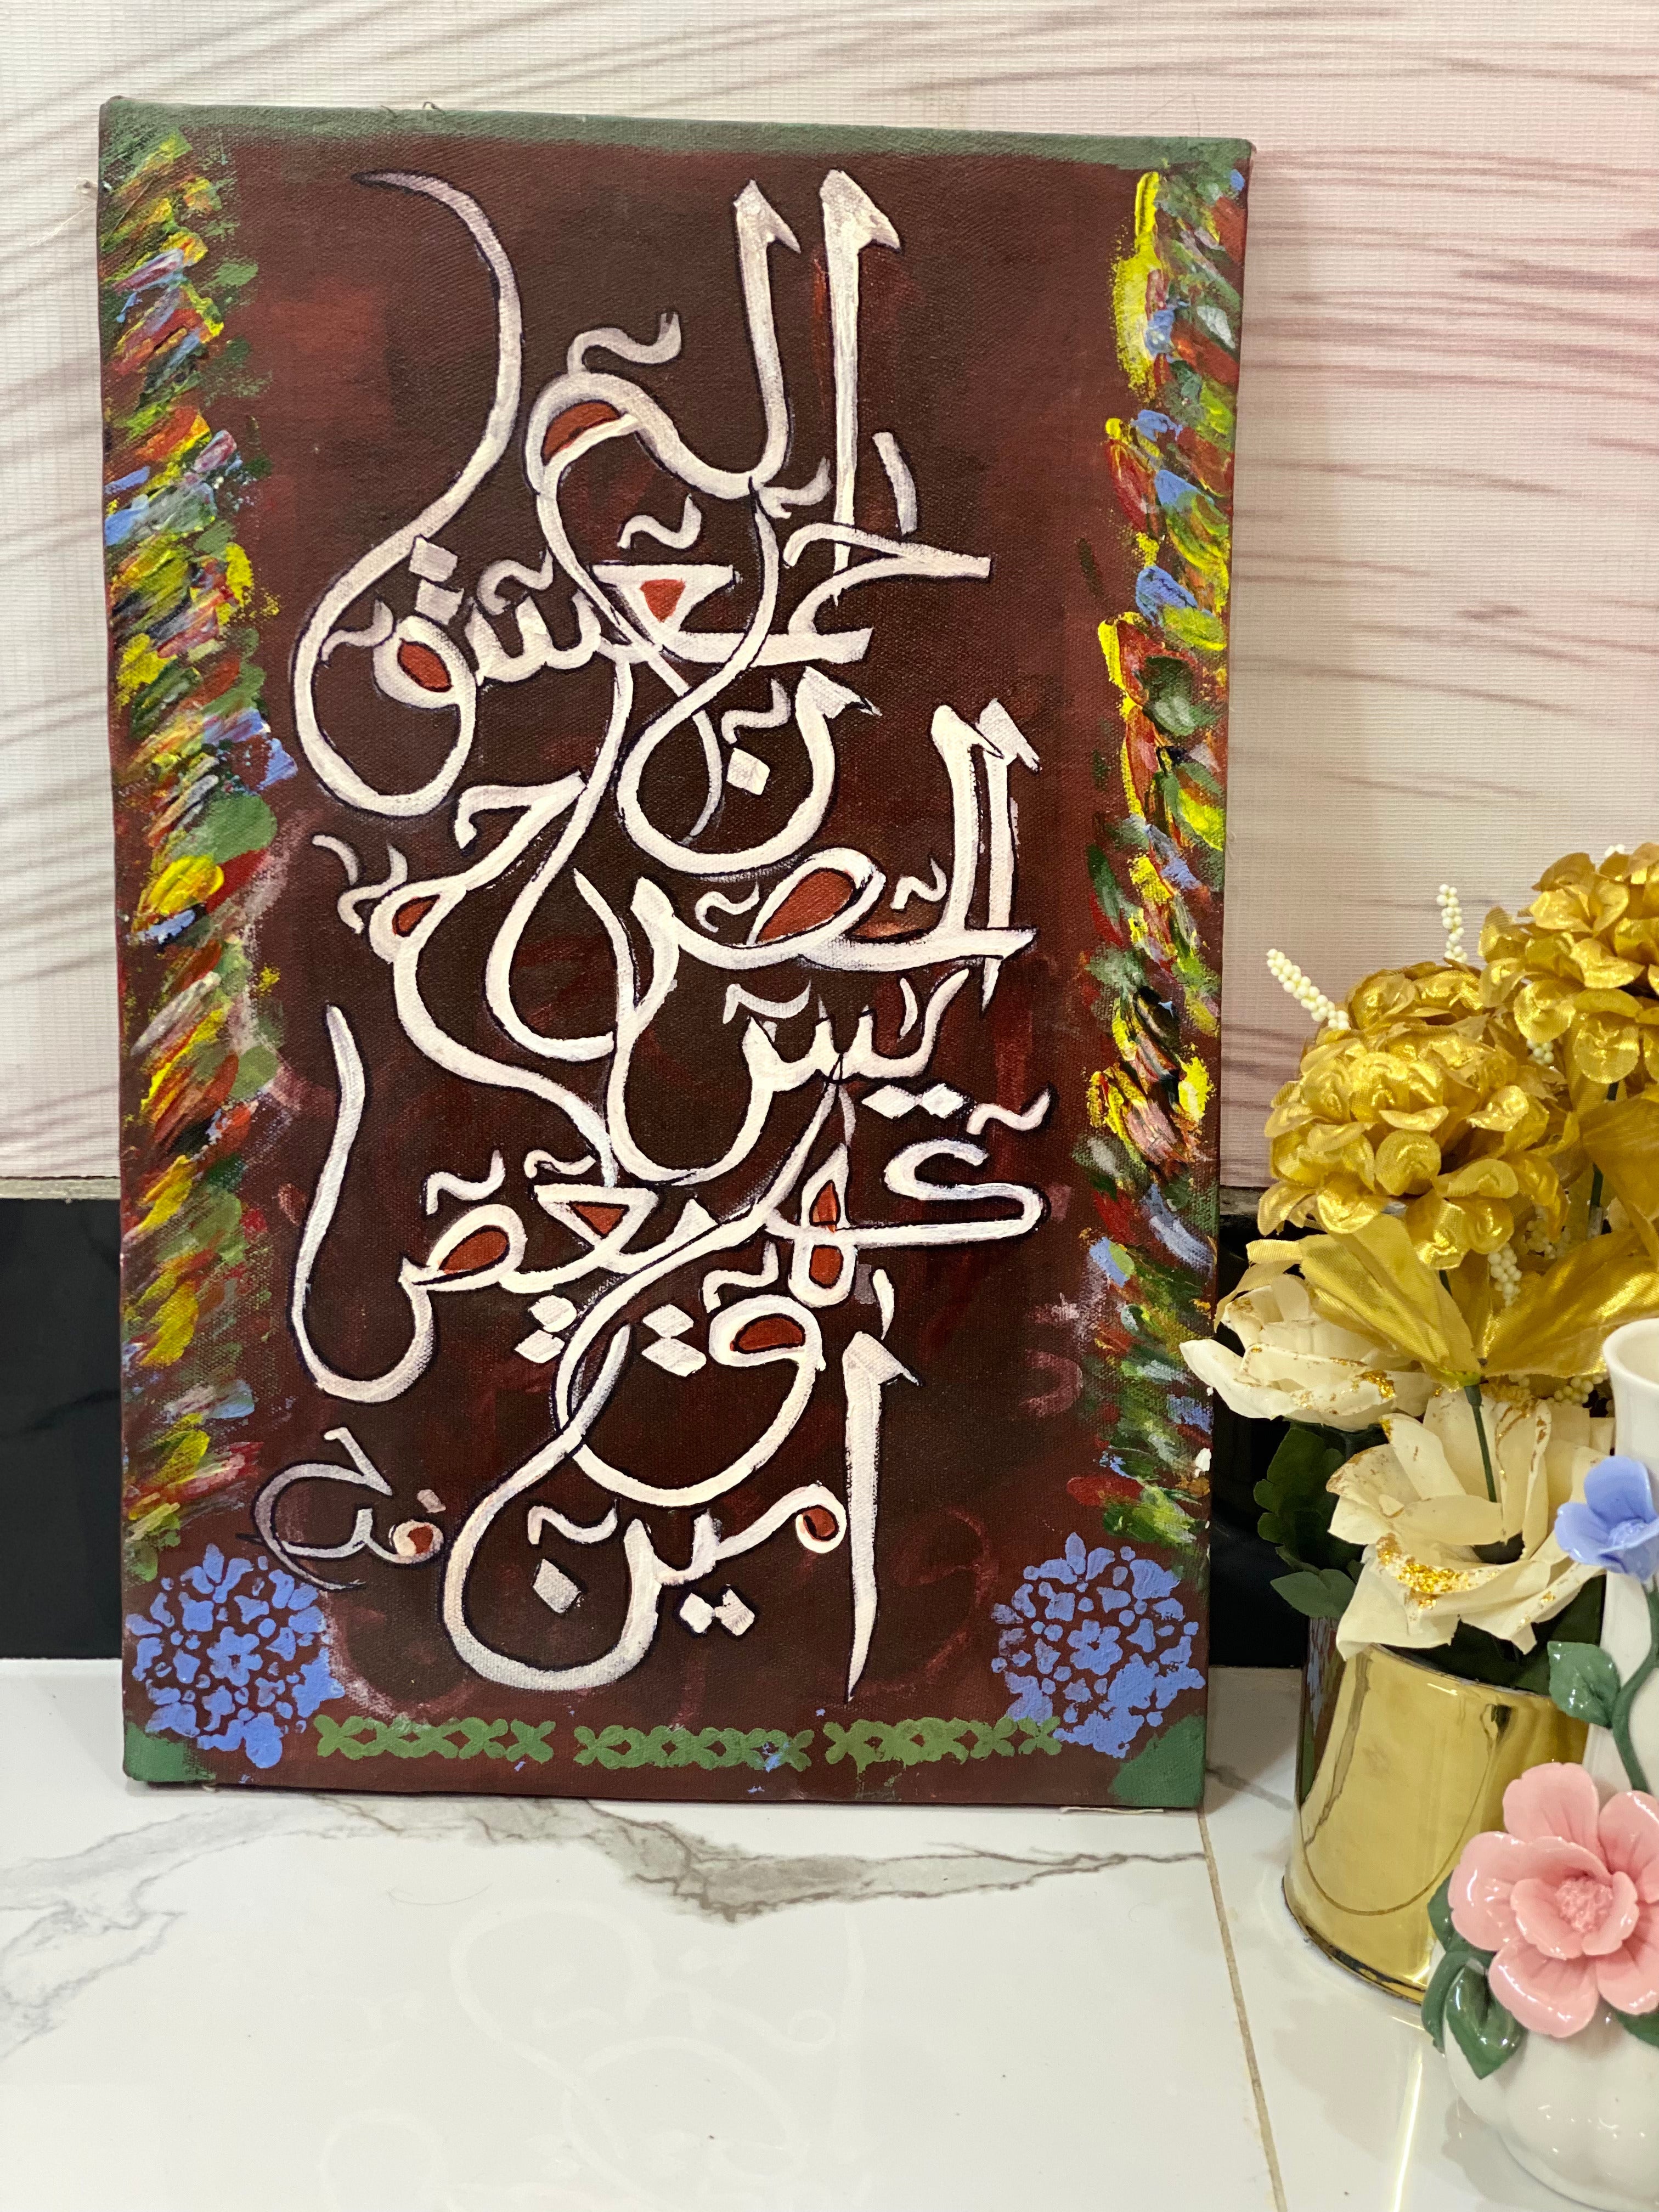 الٓمٓ
حٰمٓعٓسٓقٓ
نٓ
الٓمٓصٓ حٰمٓ
يٰسٓ
كٓهٰيٰعٓصٓ
قٓ
اٰمين